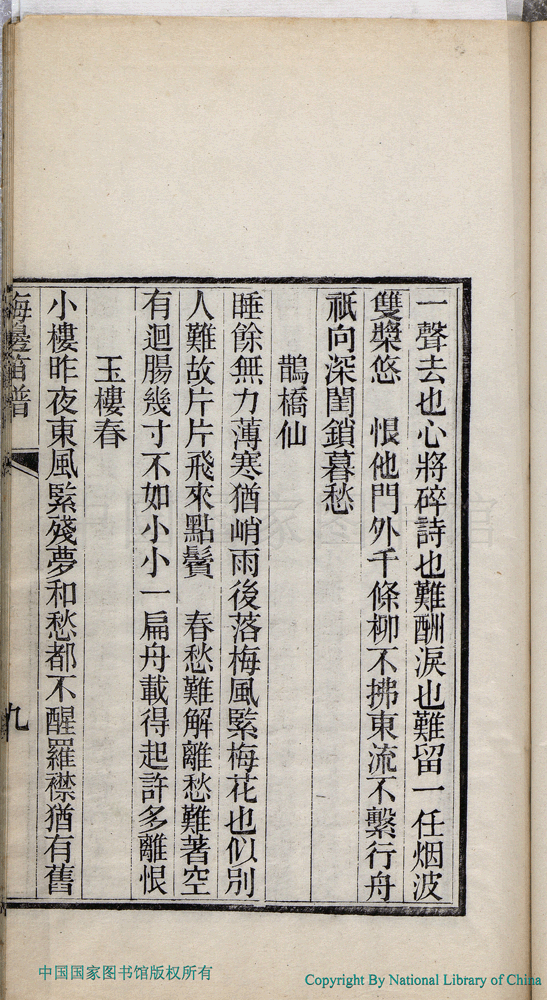 一聲去也心將碎詩也難酬淚也難留一任烟波
雙槳悠　恨他門外千條柳不拂東流不繫行舟
祇向深閨鎖暮愁
鵲橋仙
睡餘無力薄寒猶峭雨後落梅風緊梅花也似別
人難故片片飛來點鬢　春愁難解離愁難著空
有迴腸幾寸不如小小一扁舟載得起許多離恨
玉樓春
小樓昨夜東風緊殘夢和愁都不醒羅襟猶有舊
梅邊笛譜
九
中国国家图书馆版权所有
Copyright By National Library of China